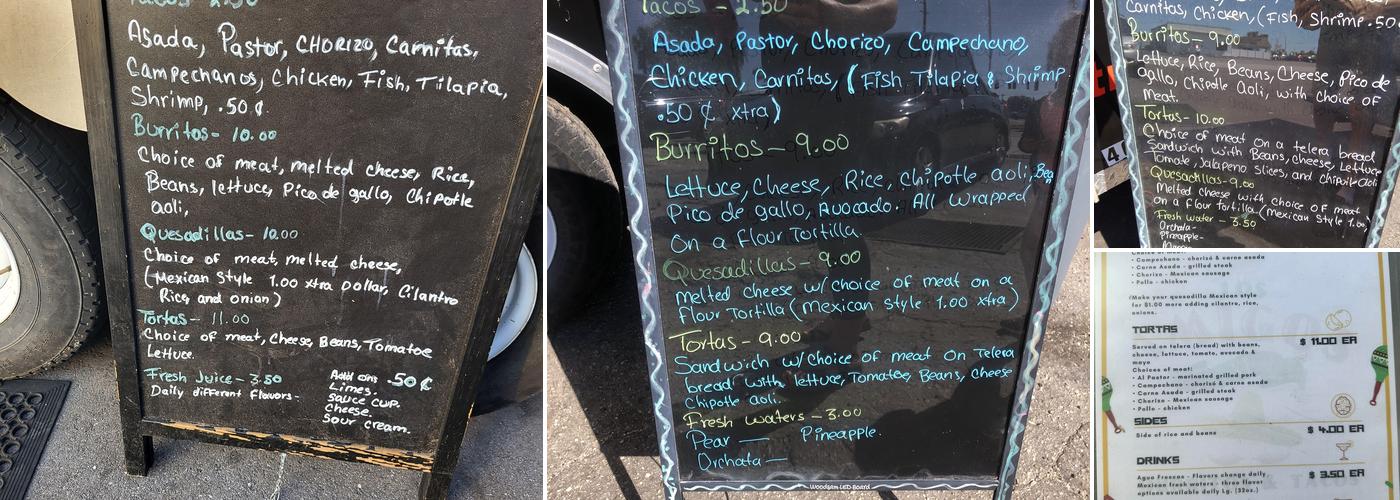 Tacos - 2.50
Asada, Pastor, CHORIZO, Carnitas,
Campechanos, Chicken, Fish, Tilapia,
Shrimp, .50 ¢
Burritos- 10.00
Choice of meat, melted cheese, Rice,
Beans, lettuce, Pico de gallo, Chipotle
aoli,
Quesadillas- 10.00
Choice of meat, melted cheese,
(Mexican Style 1.00 xtra pollar, Cilantro
Rice and onion)
Tortas- 11.00
Choice of meat, Cheese, Beans, Tomatoe
Lettuce.
Fresh Juice- 3.50
Daily different Flavors-
Add ons .50 ¢
Limes.
Sauce cup.
Cheese.
Sour cream.
Tacos - 2.50
Asada, Pastor, Chorizo, Campechano,
Chicken, Carnitas, (Fish Tilapia & Shrimp
.50 ¢ xtra)
Burritos - 9.00
Lettuce, Cheese, Rice, Chipotle aoli,
Pico de gallo, Avocado. All Wrapped
On a flour Tortilla.
Quesadillas- 9.00
melted cheese w/ choice of meat on a
flour Tortilla (Mexican Style 1.00 xtra)
Tortas - 9.00
Sandwich w/choice of meat on Telera
bread with lettuce, Tomatoe, Beans, Cheese
Chipotle aoli.
Fresh waters - 3.00
Pear — Pineapple.
Orchata —
Woodsam LED Board
Carnitas, Chicken, (Fish, Shrimp .50
Burritos- 9.00
Lettuce, Rice, Beans, Cheese, Pico de
gallo, Chipotle Aoli, with choice of
meat.
Tortas- 10.00
Choice of meat on a telera bread
Sandwich with Beans, cheese, Lettuce
Tomato, Jalapeno slices, and chipotle aoli
Quesadillas- 9.00
Melted cheese with choice of meat
on a flour tortilla (mexican Style 1.00)
Fresh water - 3.50
Orchata-
Pineapple-
• Campechano - chorizo & carne asada
• Carne Asada - grilled steak
• Chorizo - Mexican sausage
• Pollo - chicken
(Make your quesadilla Mexican style
for $1.00 more adding cilantro, rice,
onions.
TORTAS
$ 11.00 EA
Served on telera (bread) with beans,
cheese, lettuce, tomato, avocado &
mayo
Choices of meat:
• Al Pastor - marinated grilled pork
• Campechano - chorizo & carne asada
• Carne Asada - grilled steak
• Chorizo - Mexican sausage
• Pollo - chicken
SIDES
Side of rice and beans
$ 4.00 EA
DRINKS
$ 3.50 EA
Agua Frescas - Flavors change daily
Mexican fresh waters - three flavor
options available daily Lg. (32oz.)